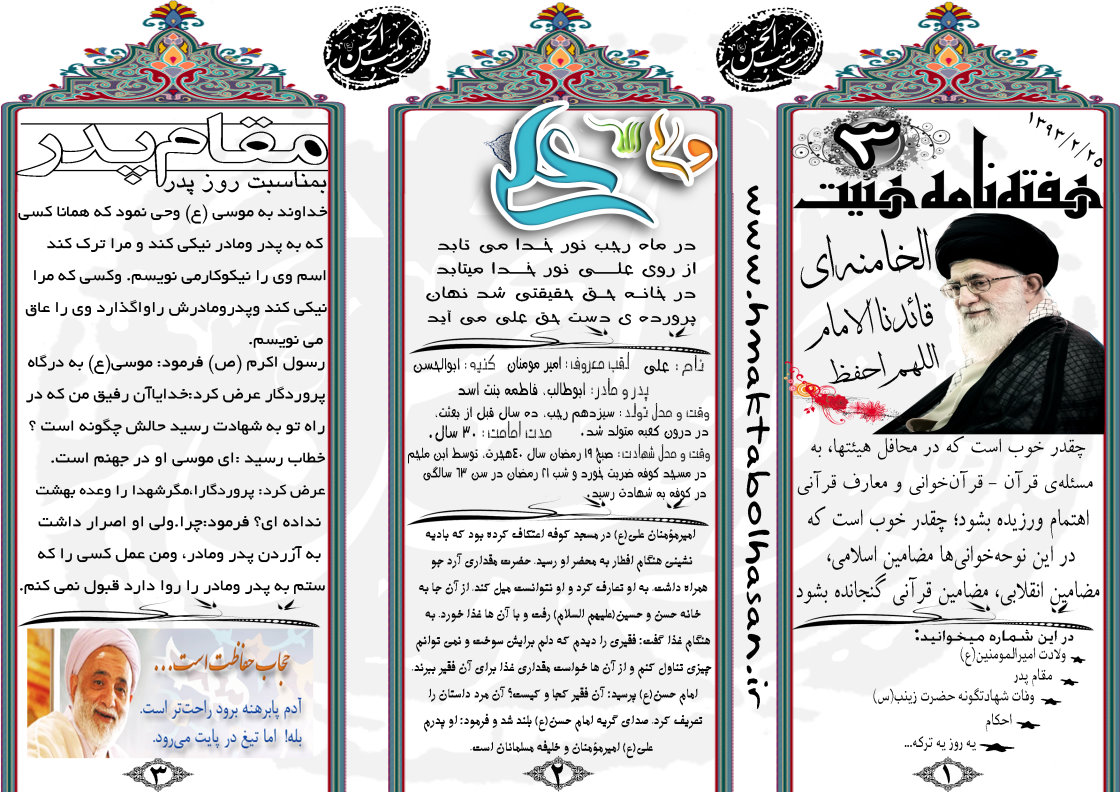 ۱۳۹۳/۲/۲۵
۳
هفته نامه هیئت
الخامنه ای
قائدنا الامام
اللهم احفظ
چقدر خوب است که در محافل هیئتها، به
مسئله‌ی قرآن - قرآن‌خوانی و معارف قرآنی
اهتمام ورزیده بشود؛ چقدر خوب است که
در این نوحه‌خوانی‌ها مضامین اسلامی،
مضامین انقلابی، مضامین قرآنی گنجانده بشود
در این شماره میخوانید:
ولادت امیرالمومنین(ع)
مقام پدر
وفات شهادتگونه حضرت زینب(س)
احکام
یه روز یه ترکه...
۱
www.hmaktabolhasan.ir
هیئت مکتب الحسن
ولی الله
علی
در ماه رجب نور خدا می تابد
از روی علی نور خدا میتابد
در خانه حق حقیقتی شد نهان
پرورده ی دست حق علی می آید
نام: علی لقب معروف: امیر مومنان کنیه: ابوالحسن
پدر و مادر: ابوطالب، فاطمه بنت اسد
وقت و محل تولد: سیزدهم رجب، ده سال قبل از بعثت،
در درون کعبه متولد شد. مدت امامت: ۳۰ سال.
وقت و محل شهادت: صبح ۱۹ رمضان سال ۴۰هجرت، توسط ابن ملجم
در مسجد کوفه ضربت خورد و شب ۲۱ رمضان در سن ۶۳ سالگی
در کوفه به شهادت رسید.
امیرمؤمنان علی(ع) در مسجد کوفه اعتکاف کرده بود که بادیه
نشینی هنگام افطار به محضر او رسید. حضرت مقداری آرد جو
همراه داشت. به او تعارف کرد و او نتوانست میل کند. از آن جا به
خانه حسن و حسین(علیهم السلام) رفت و با آن ها غذا خورد. به
هنگام غذا گفت: فقیری را دیدم که دلم برایش سوخت و نمی توانم
چیزی تناول کنم و از آن ها خواست مقداری غذا برای آن فقیر ببرند.
امام حسن(ع) پرسید: آن فقیر کجا و کیست؟ آن مرد داستان را
تعریف کرد. صدای گریه امام حسن(ع) بلند شد و فرمود: او پدرم
علی(ع) امیرمؤمنان و خلیفه مسلمانان است.
۲
هیئت مکتب الحسن
مقام پدر
بمناسبت روز پدر
خداوند به موسی (ع) وحی نمود که همانا کسی
که به پدر ومادر نیکی کند و مرا ترک کند
اسم وی را نیکوکارمی نویسم. وکسی که مرا
نیکی کند وپدرومادرش راواگذارد وی را عاق
می نویسم.
رسول اکرم (ص) فرمود: موسی(ع) به درگاه
پروردگار عرض کرد:خدایاآن رفیق من که در
راه تو به شهادت رسید حالش چگونه است ؟
خطاب رسید :ای موسی او در جهنم است.
عرض کرد: پروردگارا،مگرشهدا را وعده بهشت
نداده ای؟ فرمود:چرا.ولی او اصرار داشت
به آزردن پدر ومادر، ومن عمل کسی را که
ستم به پدر ومادر را روا دارد قبول نمی کنم.
حجاب حفاظت است...
آدم پابرهنه برود راحت‌تر است.
بله! اما تیغ در پایت می‌رود.
۳